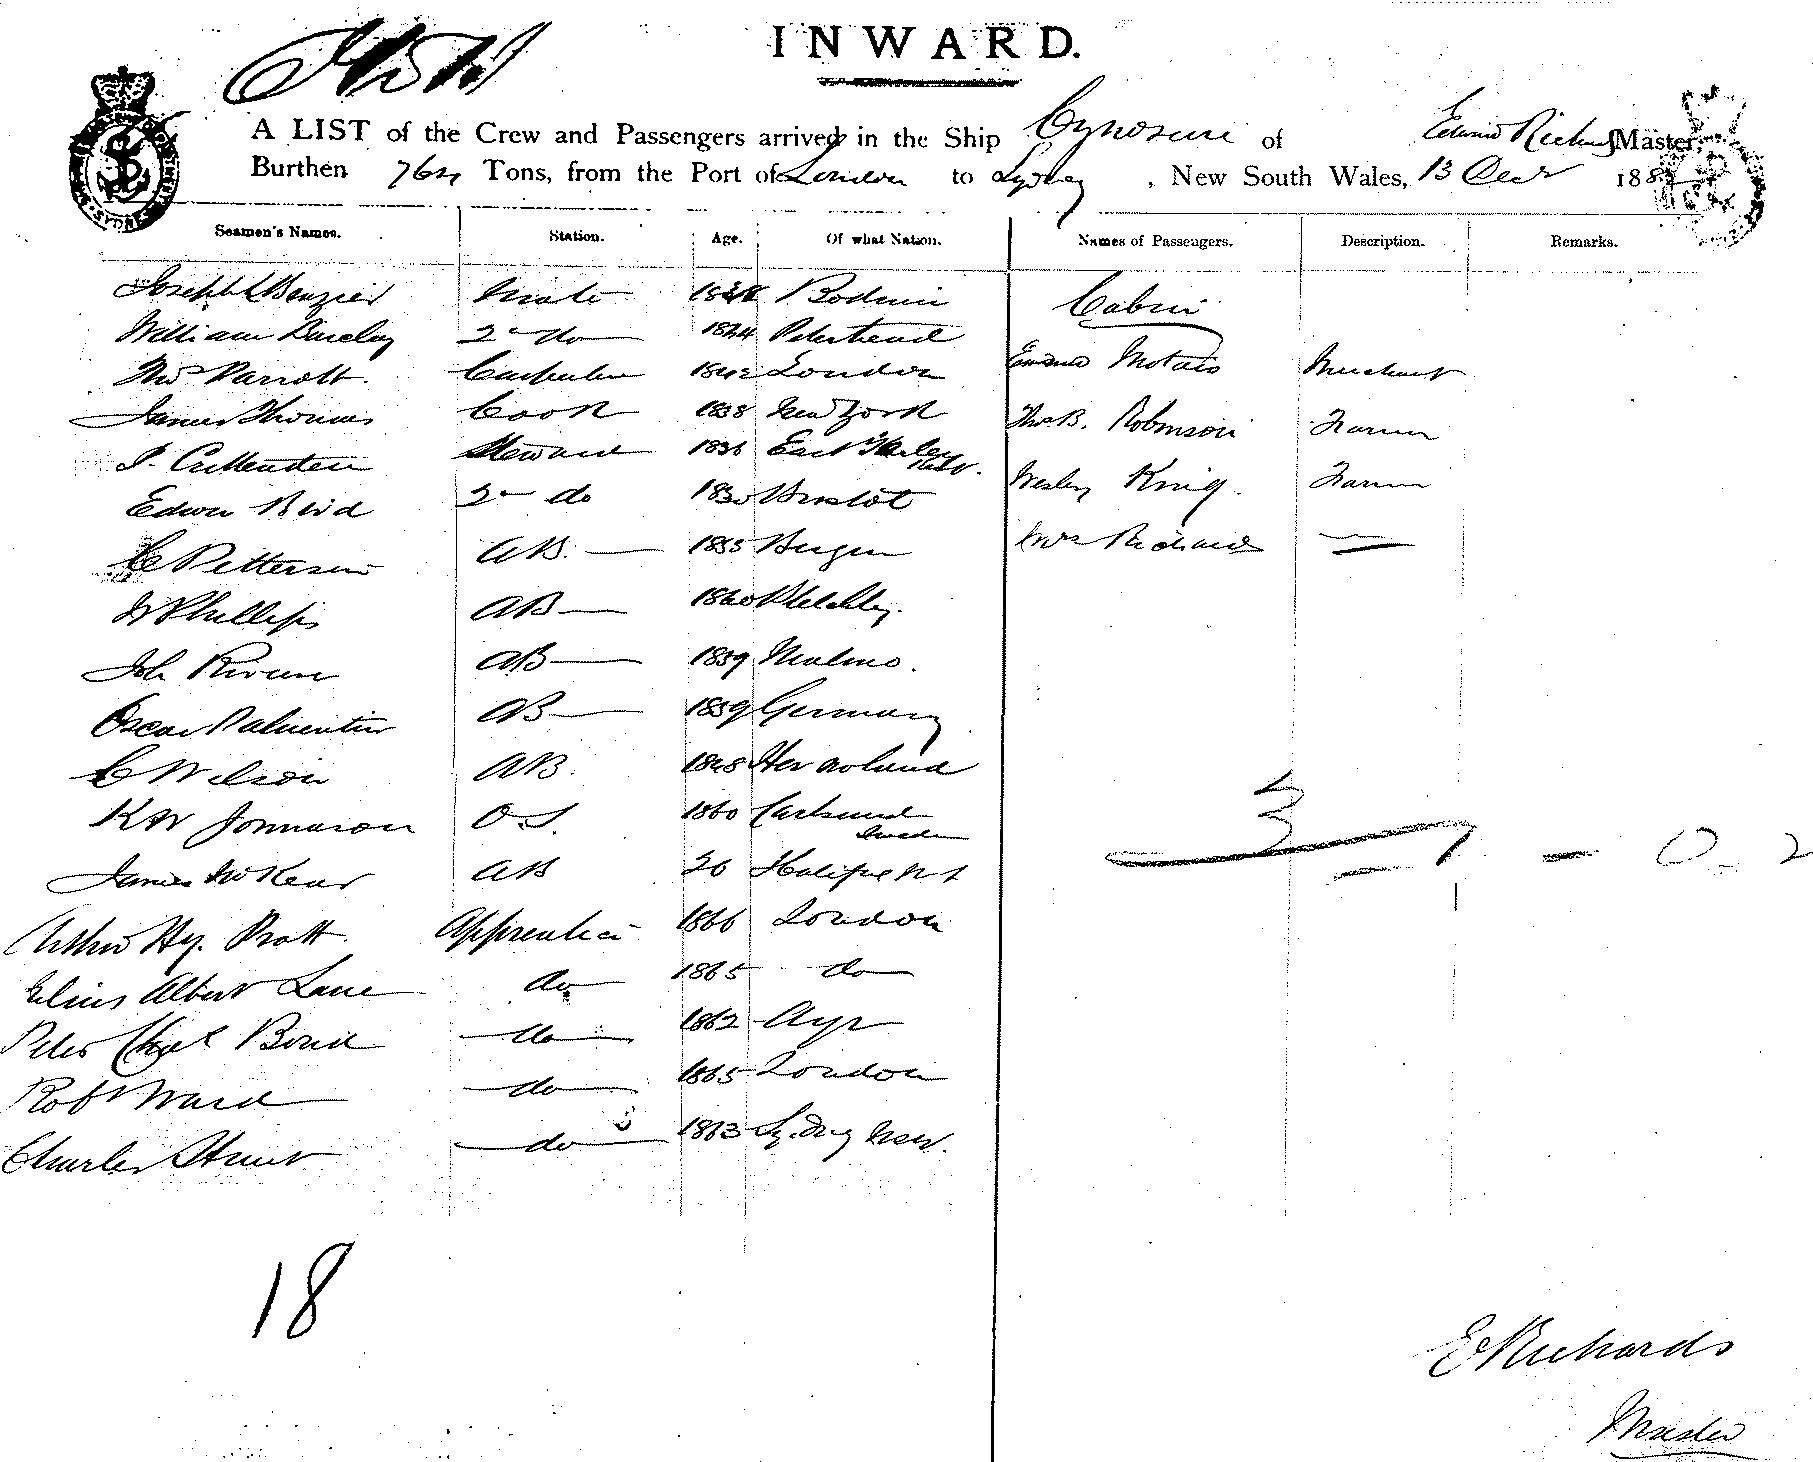 INWARD.
A LIST of the Crew and Passengers arrived in the Ship Cynosure of Edward Richards Master,
Burthen 764 Tons, from the Port of London to Sydney, New South Wales, 13 Decr 188
Seamen's Names. Station. Age. Of what Nation. Names of Passengers. Description. Remarks.
Mate Bodmin
Cabin
William Barclay 2nd do 1844 Peterhead
Thos Parrott. Carpenter 1842 London
Motais Merchant
James Thomas Cook 1838 New York
Thos B. Robinson Farmer
J. Crittenden Steward 1836 East
Edwin Bird 2nd do 1830 Bristol
Wesley King. Farmer
C Petterson AB. 1855 Bergen
Mrs Richards —
Phillips AB 1860
Joh AB 1859 Malmo.
Oscar AB 1859 Germany
C Wilson AB. 1848
K W Jonnason O.S. 1860 Carlsund
Sweden
James AB 20 Halifax N S
Arthur Hy. Pratt. Apprentice 1866 London
Albert Lane do 1865 do
Peter Chas Bond do 1862 Ayr
Robt Ward do 1865 London
Charles Hunt do 1863 Sydney NSW.
18
E Richards
Master